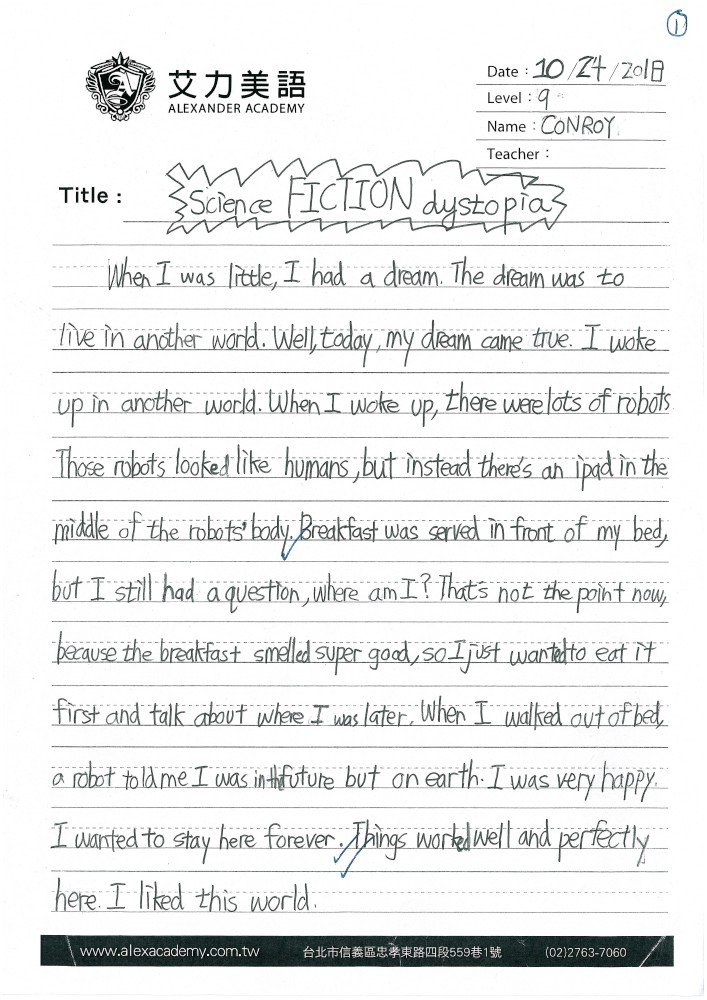 ①
艾力美語
ALEXANDER ACADEMY
Date : 10/24/2018
Level : 9
Name : CONROY
Teacher :
Title : Science FICTION dystopia
When I was little, I had a dream. The dream was to
live in another world. Well, today, my dream came true. I woke
up in another world. When I woke up, there were lots of robots
Those robots looked like humans, but instead there's an ipad in the
middle of the robots' body. Breakfast was served in front of my bed,
but I still had a question, where am I? That's not the point now,
because the breakfast smelled super good, so I just wanted to eat it
first and talk about where I was later. When I walked out of bed,
a robot told me I was in the future but on earth. I was very happy.
I wanted to stay here forever. Things worked well and perfectly
here. I liked this world.
www.alexacademy.com.tw 台北市信義區忠孝東路四段559巷1號 (02)2763-7060